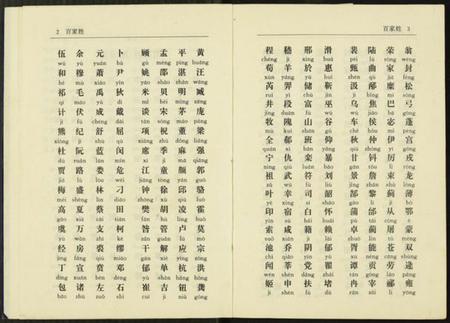 2 百家姓
伍余元卜 顾孟平黄
wǔ yú yuán bǔ gù mèng píng huáng
和穆萧尹 姚邵湛汪
hé mù xiāo yǐn yáo shào zhàn wāng
祁毛禹狄 米贝明臧
qí máo yǔ dí mǐ bèi míng zāng
计伏成戴 谈宋茅庞
jì fú chéng dài tán sòng máo páng
熊纪舒屈 项祝董梁
xióng jǐ shū qū xiàng zhù dǒng liáng
杜阮蓝闵 席季麻强
dù ruǎn lán mǐn xí jì má qiáng
贾路娄危 江童颜郭
jiǎ lù lóu wēi jiāng tóng yán guō
梅盛林刁 钟徐邱骆
méi shèng lín diāo zhōng xú qiū luò
高夏蔡田 樊胡凌霍
gāo xià cài tián fán hú líng huò
虞万支柯 昝管卢莫
yú wàn zhī kē zǎn guǎn lú mò
经房裘缪 干解应宗
jīng fáng qiú miào gān xiè yīng zōng
丁宣贲邓 郁单杭洪
dīng xuān bēn dèng yù shàn háng hóng
包诸左石 崔吉钮龚
bāo zhū zuǒ shí cuī jí niǔ gōng
百家姓 3
程嵇邢滑 裴陆荣翁
chéng jī xíng huá péi lù róng wēng
荀羊於惠 甄曲家封
xún yáng yū huì zhēn qū jiā fēng
芮羿储靳 汲邴糜松
ruì yì chǔ jìn jí bǐng mí sōng
井段富巫 乌焦巴弓
jǐng duàn fù wū wū jiāo bā gōng
牧隗山谷 车侯宓蓬
mù kuí shān gǔ chē hóu mì péng
全郗班仰 秋仲伊宫
quán xī bān yǎng qiū zhòng yī gōng
宁仇栾暴 甘钭厉戎
níng qiú luán bào gān tǒu lì róng
祖武符刘 景詹束龙
zǔ wǔ fú liú jǐng zhān shù lóng
叶幸司韶 郜黎蓟薄
yè xìng sī sháo gào lí jì bó
印宿白怀 蒲邰从鄂
yìn sù bái huái pú tái cóng è
索咸籍赖 卓蔺屠蒙
suǒ xián jí lài zhuó lìn tú méng
池乔阴郁 胥能苍双
chí qiáo yīn yù xū nài cāng shuāng
闻莘党翟 谭贡劳逄
wén shēn dǎng zhái tán gòng láo páng
姬申扶堵 冉宰郦雍
jī shēn fú dǔ rǎn zǎi lì yōng